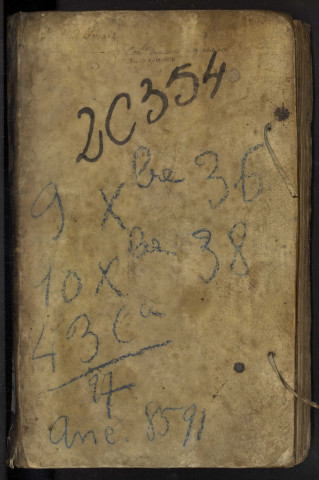 2C354
9 Xbre 36
10 Xbre 38
43 Ca
94
anc. 8591